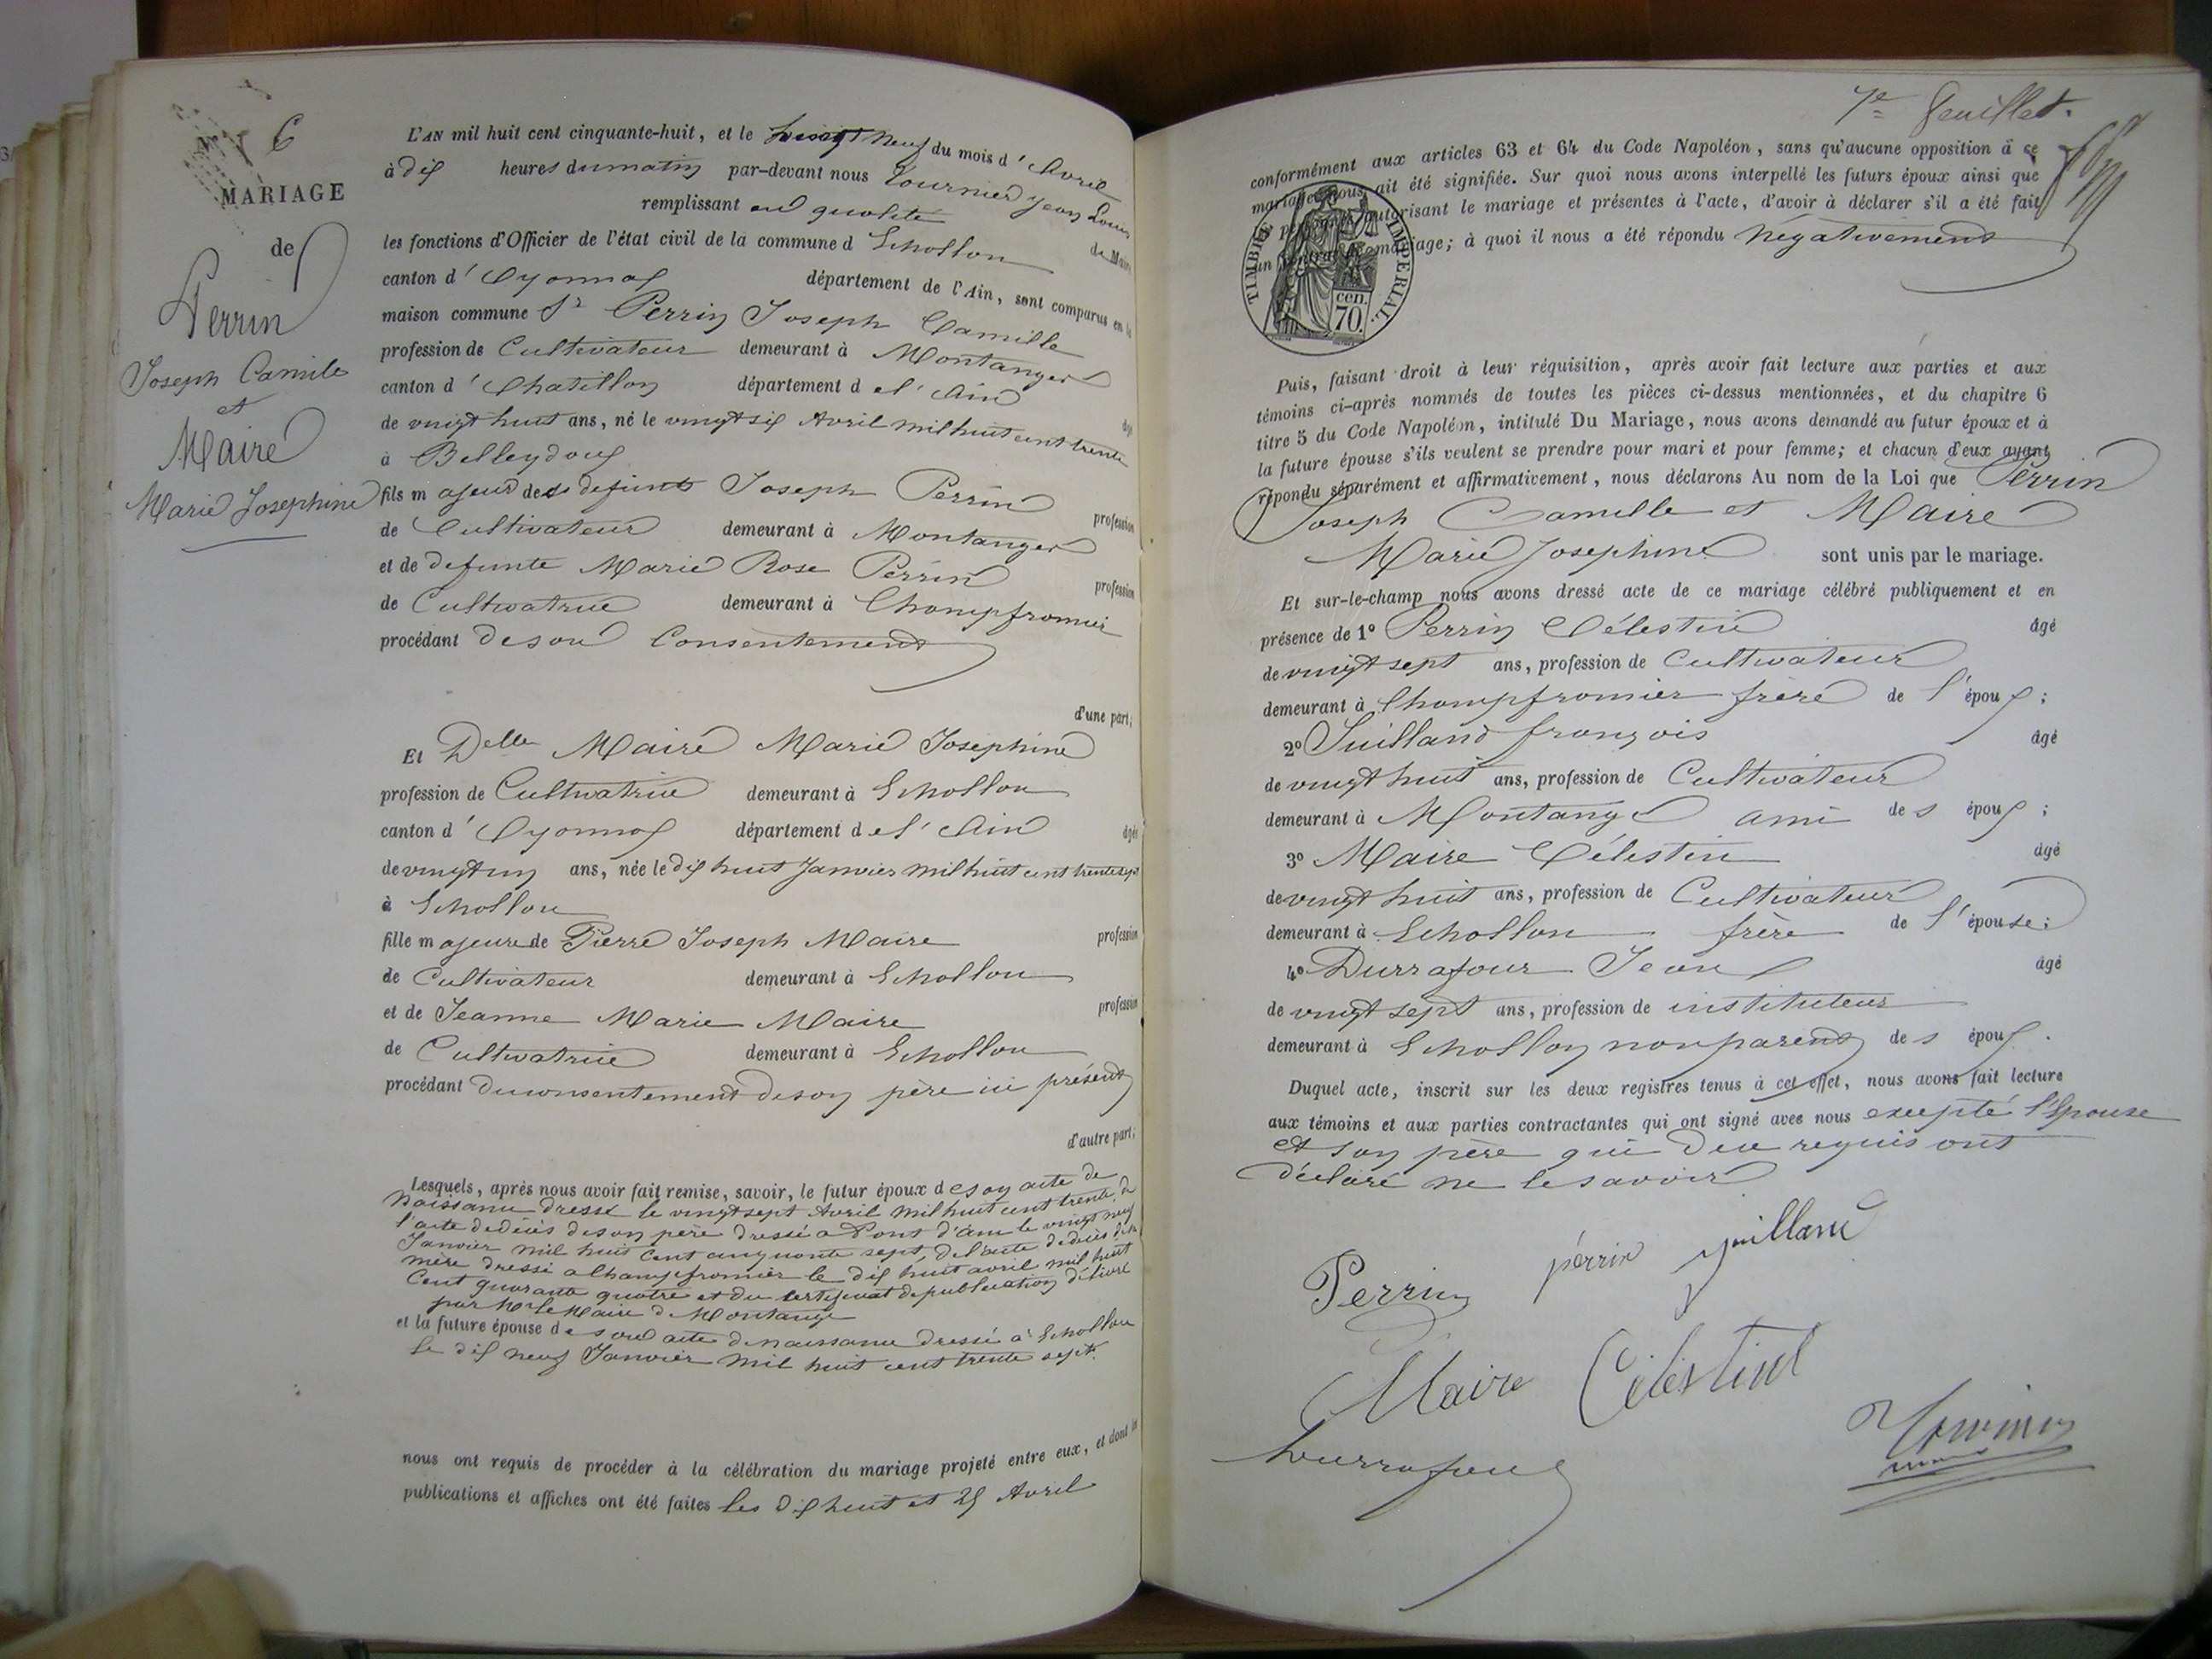 6
MARIAGE
de
Perrin
Joseph Camile
et
Maire
Marie Josephine
L'AN mil huit cent cinquante-huit, et le vingt neuf du mois d'Avril
à dix heures du matin par-devant nous Tournier Jean Louis
remplissant en qualité de Maire
les fonctions d'Officier de l'état civil de la commune d Echollon
canton d'Oyonnax département de l'Ain, sont comparus en la
maison commune Sr Perrin Joseph Camille
profession de Cultivateur demeurant à Montanges
canton d'Chatillon département de l'Ain
de vingt huit ans, né le vingt six Avril mil huit cent trente
à Belleydoux
fils majeur de defunt Joseph Perrin profession
de Cultivateur demeurant à Montanges
et de defunte Marie Rose Perrin profession
de Cultivatrice demeurant à Champfromier
procédant de son Consentement
d'une part;
Et Delle Maire Marie Josephine
profession de Cultivatrice demeurant à Echollon
canton d'Oyonnax département de l'Ain âgée
de vingt un ans, née le dix huit Janvier mil huit cent trente sept
à Echollon
fille majeure de Pierre Joseph Maire profession
de Cultivateur demeurant à Echollon
et de Jeanne Marie Maire profession
de Cultivatrice demeurant à Echollon
procédant du consentement de son père ici présent
d'autre part;
Lesquels, après nous avoir fait remise, savoir, le futur époux de son acte de
naissance dressé le vingt sept Avril mil huit cent trente, de
l'acte de décès de son père dressé a Pont d'ain le vingt neuf
Janvier mil huit Cent cinquante sept, de l'acte de décès de sa
mère dressé a Champfromier le dix huit avril mil huit
Cent quarante quatre et du certificat de publication délivré
par Mr le Maire de Montange
et la future épouse de son acte de naissance dressé à Echollon
le dix neuf Janvier mil huit cent trente sept.
nous ont requis de procéder à la célébration du mariage projeté entre eux, et dont les
publications et affiches ont été faites les dix huit et 25 Avril
7e feuillet.
conformément aux articles 63 et 64 du Code Napoléon, sans qu'aucune opposition à ce
mariage nous ait été signifiée. Sur quoi nous avons interpellé les futurs époux ainsi que
autorisant le mariage et présentes à l'acte, d'avoir à déclarer s'il a été fait
un contrat de mariage; à quoi il nous a été répondu négativement
TIMBRE IMPERIAL.
70 cen.
Puis, faisant droit à leur réquisition, après avoir fait lecture aux parties et aux
témoins ci-après nommés de toutes les pièces ci-dessus mentionnées, et du chapitre 6
titre 5 du Code Napoléon, intitulé Du Mariage, nous avons demandé au futur époux et à
la future épouse s'ils veulent se prendre pour mari et pour femme; et chacun d'eux ayant
répondu séparément et affirmativement, nous déclarons Au nom de la Loi que Perrin
Joseph Camille et Maire
Marie Josephine sont unis par le mariage.
Et sur-le-champ nous avons dressé acte de ce mariage célébré publiquement et en
présence de 1° Perrin Célestin âgé
de vingt sept ans, profession de Cultivateur
demeurant à Champfromier frère de l'époux;
2° Juilland françois âgé
de vingt huit ans, profession de Cultivateur
demeurant à Montange ami des époux;
3° Maire Célestin âgé
de vingt huit ans, profession de Cultivateur
demeurant à Echollon frère de l'épouse;
4° Durrafour Jean âgé
de vingt sept ans, profession de instituteur
demeurant à Echollon non parent des époux.
Duquel acte, inscrit sur les deux registres tenus à cet effet, nous avons fait lecture
aux témoins et aux parties contractantes qui ont signé avec nous excepté l'Epouse
et son père qui de ce requis ont
déclaré ne le savoir
Perrin perrin juilland
Maire Célestin
Durrafour Tournier